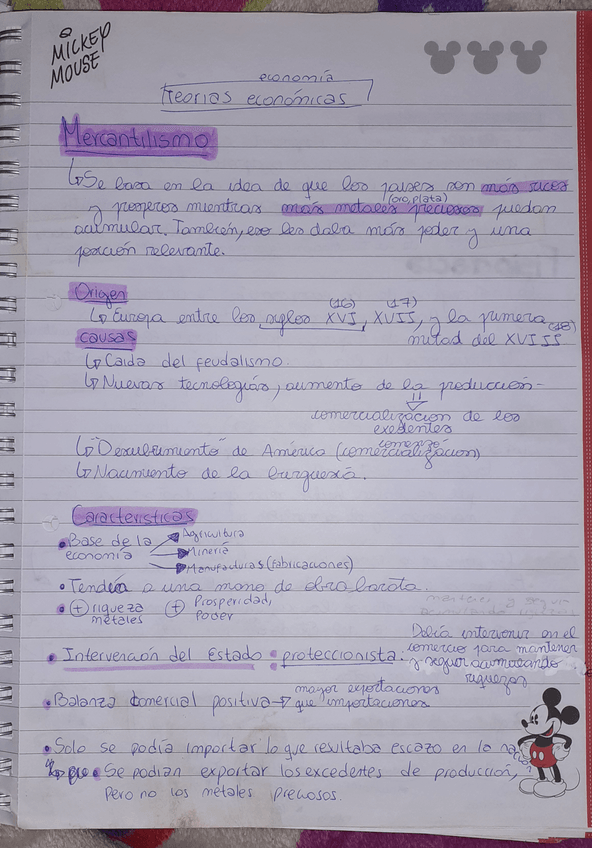 MICKEY
MOUSE
economía
Teorías económicas
Mercantilismo
↳Se basa en la idea de que los países son más ricos
(oro, plata)
y prosperos mientras más metales preciosos puedan
acumular. También, eso les daba más poder y una
porción relevante.
Origen
(16) (17)
↳ Europa entre los siglos XVI, XVII, y la primera
(18)
mitad del XVIII
causas
↳ Caída del feudalismo.
↳ Nuevas tecnologías, aumento de la producción-
comercialización de los
exedentes
comenzó
↳ "Descubrimiento" de América (comercialización)
↳ Nacimiento de la burguesía.
Características
• Base de la economía → Agricultura
→ Minería
→ Manufacturas (fabricaciones)
• Tendía a una mano de obra barata.
• + riqueza metales + Prosperidad, Poder
• Intervención del Estado : proteccionista: Debía intervenir en el
comercio para mantener
y seguir acumulando
riquezas
• Balanza comercial positiva → mayor exportaciones
que importaciones
• Solo se podía importar lo que resultaba escazo en la nación
• Se podían exportar los excedentes de producción,
pero no los metales preciosos.